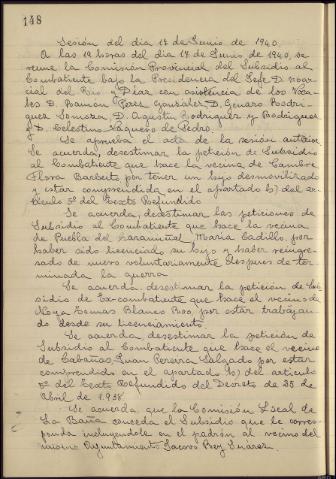 148
Sesión del dia 17 de Junio de 1940.
A las 19 horas del dia 17 de Junio de 1940, se
reune la Comisión Provincial del Subsidio al
Combatiente bajo la Presidencia del Jefe D.
cial del Rio y Diaz con asistencia de los Voca-
les D. Ramón Pérez González, D. Genaro Rodri-
guez Somoza, D. Agustin Rodriguez y Rodriguez
y D. Celestino Vaquero de Pedro.
Se aprueba el acta de la sesión anterior
Se acuerda, desestimar la petición de Subsidio
al Combatiente que hace la vecina de Cambre
Flora Barbeito por tener un hijo desmovilizado
y estar comprendida en el apartado b) del ar-
ticulo 5º del Texto Refundido
Se acuerda, desestimar las peticiones de
Subsidio al Combatiente que hace la vecina
de Puebla del Caramiñal, Maria Cadillo, por
haber sido licenciado su hijo y haber reingre-
sado de nuevo voluntariamente despues de ter-
minada la guerra
Se acuerda desestimar la petición de Sub-
sidio de Ex-combatiente que hace el vecino de
Noya Tomas Blanco Roo, por estar trabajan-
do desde su licenciamiento
Se acuerda, desestimar la petición de
Subsidio al Combatiente que hace el vecino
de Cabañas, Juan Pereira Salgado por estar
comprendido en el apartado b) del articulo
5º del Texto Refundido del Decreto de 25 de
Abril de 1.938.
Se acuerda que la Comisión Local de
La Baña conceda el Subsidio que le corres-
ponda incluyendole en el padrón al vecino del
mismo Ayuntamiento Jacobo Rey Suárez.